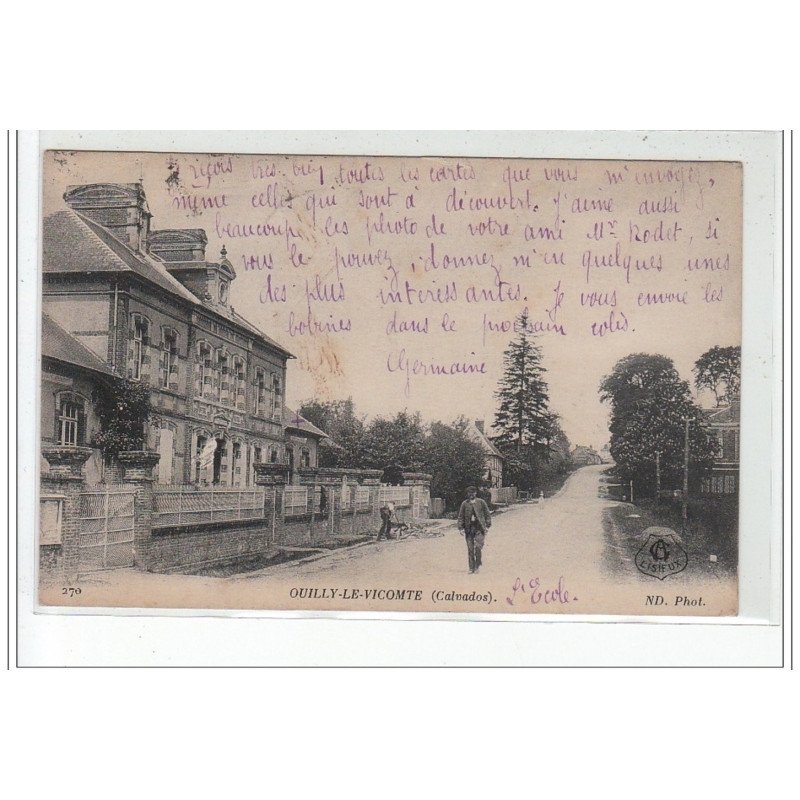 reçois très bien toutes les cartes que vous m'envoyez,
même celles qui sont à découvert. J'aime aussi
beaucoup les photo de votre ami Mr Rodet, si
vous le pouvez, donnez m'en quelques unes
des plus interessantes. Je vous envoie les
bobines dans le prochain colis.
Germaine
270 OUILLY-LE-VICOMTE (Calvados). L'Ecole ND. Phot.
LISIEUX